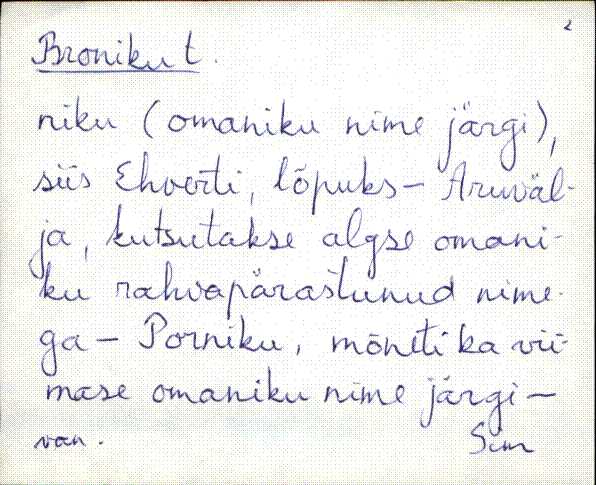 2
Broniku t.
niku (omaniku nime järgi),
siis Ehverti, lõpuks – Aruväl-
ja, kutsutakse algse omani-
ku rahvapärastunud nime-
ga – Porniku, mõneti ka vii-
mase omaniku nime järgi –
van. Sim